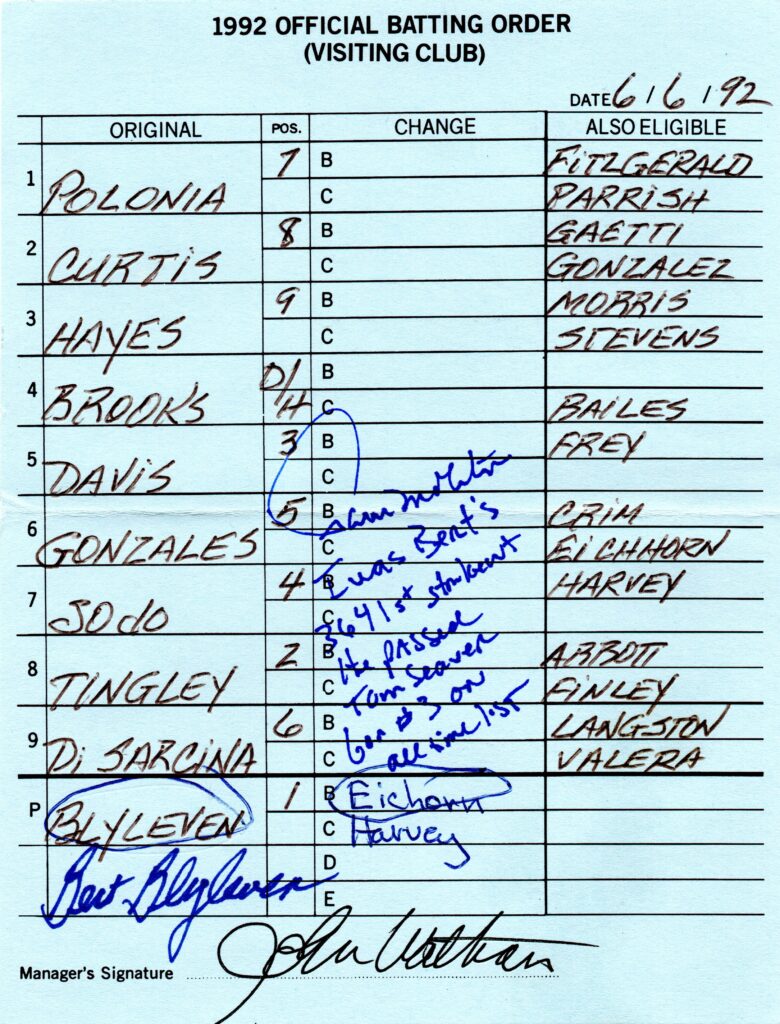 1992 OFFICIAL BATTING ORDER
(VISITING CLUB)
DATE 6 / 6 / 92
ORIGINAL POS. CHANGE ALSO ELIGIBLE
1 POLONIA 7 B FITZGERALD
C PARRISH
2 CURTIS 8 B GAETTI
C GONZALEZ
3 HAYES 9 B MORRIS
C STEVENS
4 BROOKS D/H B
C BAILES
5 DAVIS 3 B FREY
C
6 GONZALES 5 B CRIM
C EICHHORN
7 SOJO 4 B HARVEY
C
8 TINGLEY 2 B ABBOTT
C FINLEY
9 DI SARCINA 6 B LANGSTON
C VALERA
I was Bert's
3641st strikeout
He passed
Tom Seaver
for #3 on
all time list
P BLYLEVEN 1 B Eichorn
C Harvey
D
E
Bert Blyleven
Manager's Signature John Wathan